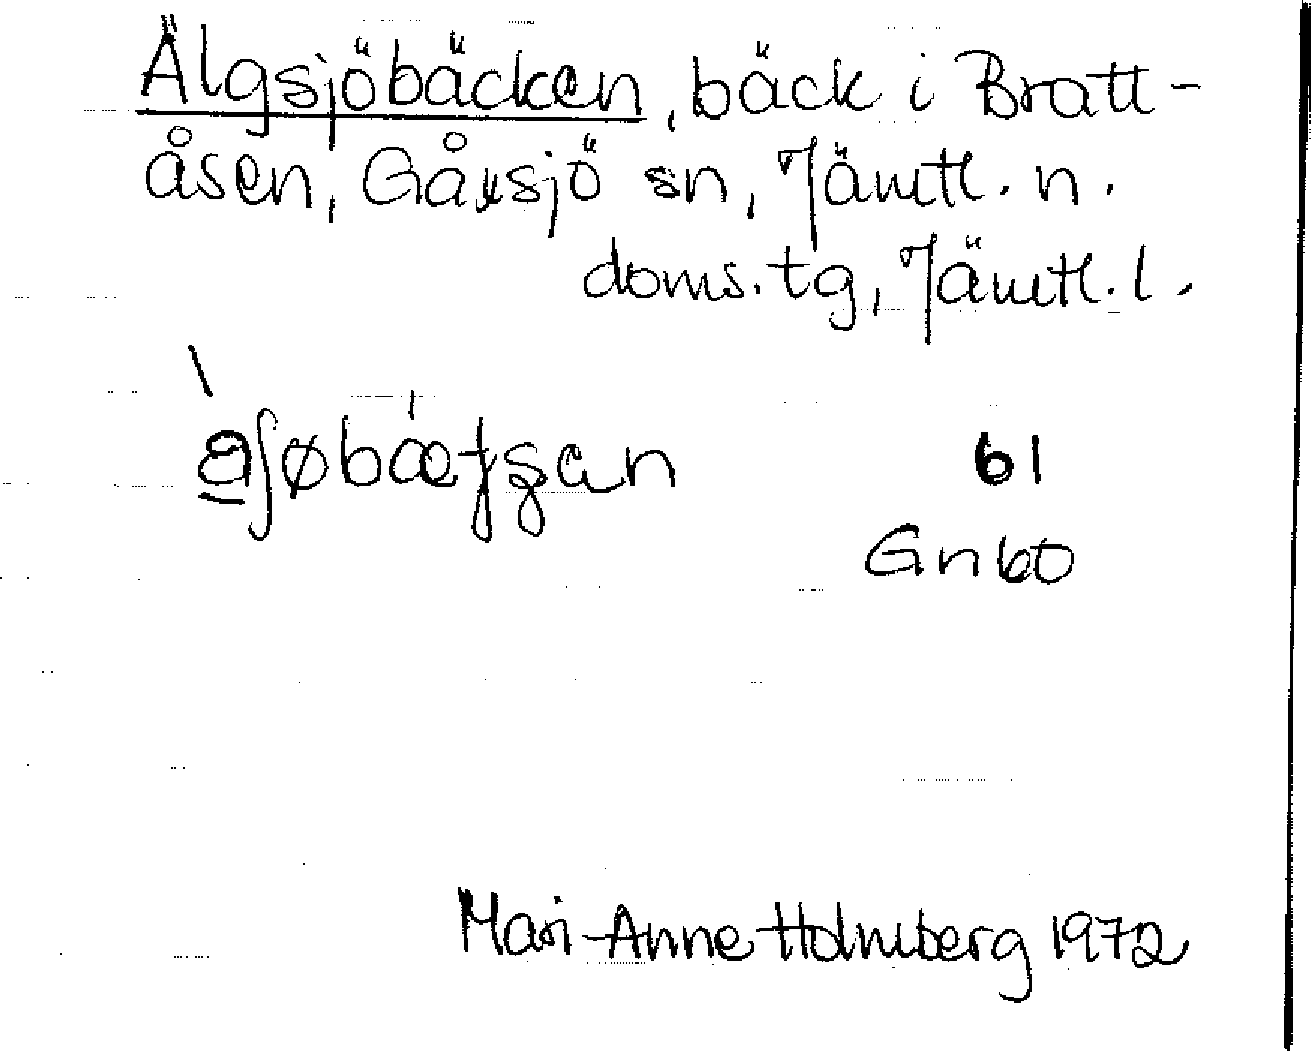 Älgsjöbäcken, bäck i Bratt-
åsen, Gåxsjö sn, Jämtl. n.
doms. tg, Jämtl. l.
61
Gn 60
Mari-Anne Holmberg 1972